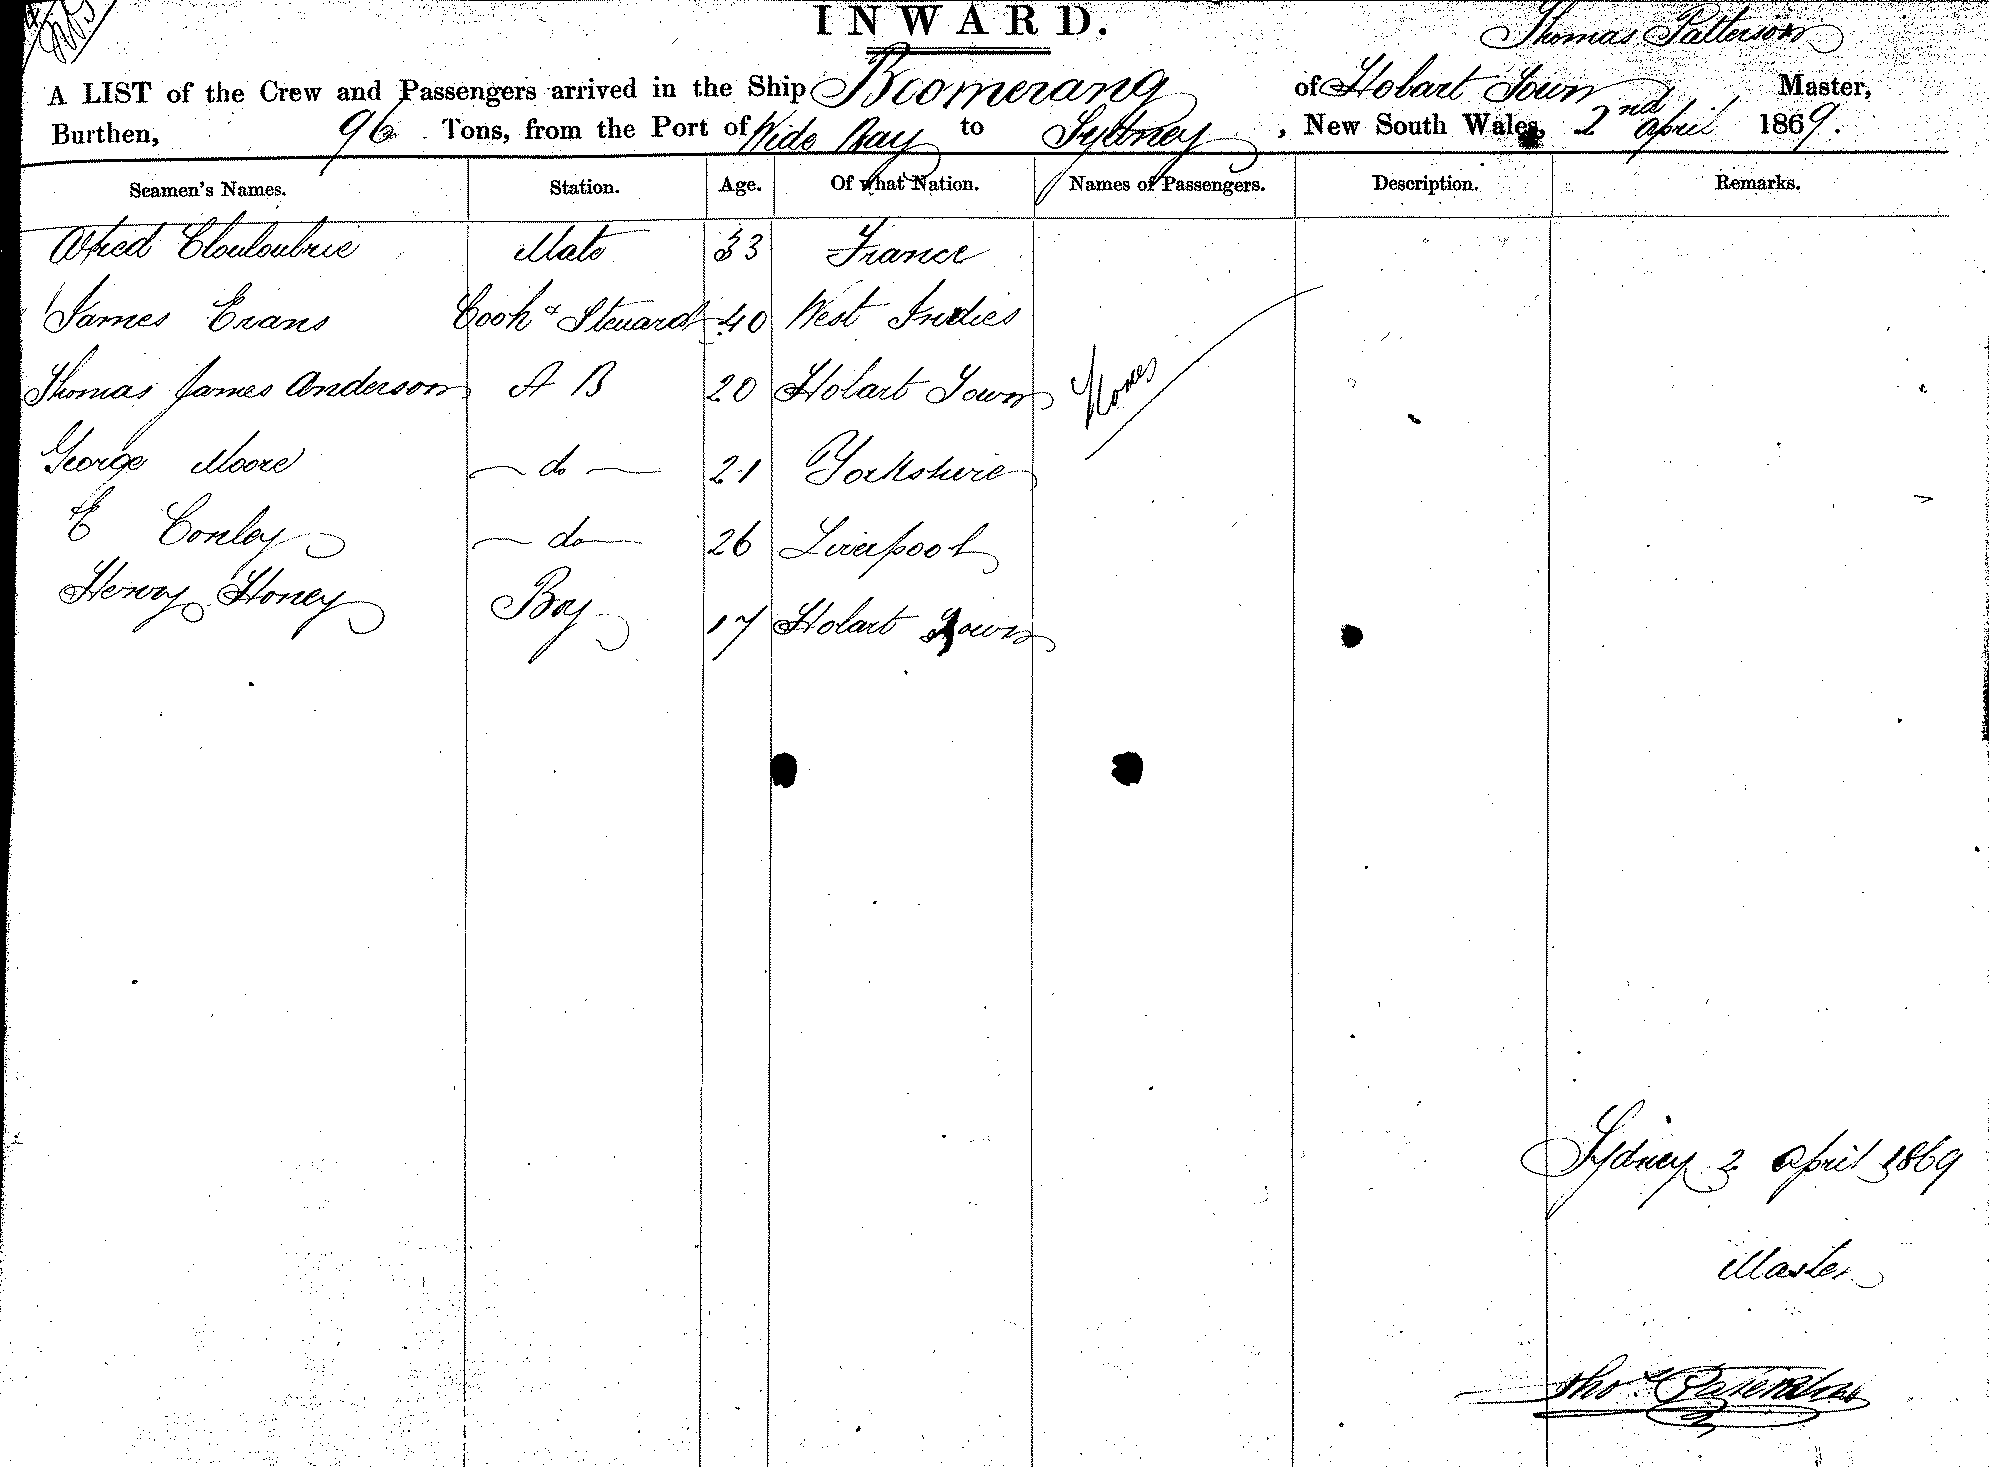 INWARD.
Thomas Patterson
A LIST of the Crew and Passengers arrived in the Ship Boomerang of Hobart Town Master,
Burthen, 96 Tons, from the Port of Wide Bay to Sydney, New South Wales, 2nd April 1869.
Seamen's Names. Station. Age. Of what Nation. Names of Passengers. Description. Remarks.
Alfred Mate 33 France
James Evans Cook & Steuard 40 West Indies
Thomas James Anderson A B 20 Hobart Town
George Moore do 21 Yorkshire
E Conley do 26 Liverpool
Henry Honey Boy 17 Hobart Town
Sydney 2 April 1869
Master
Thos Patterson